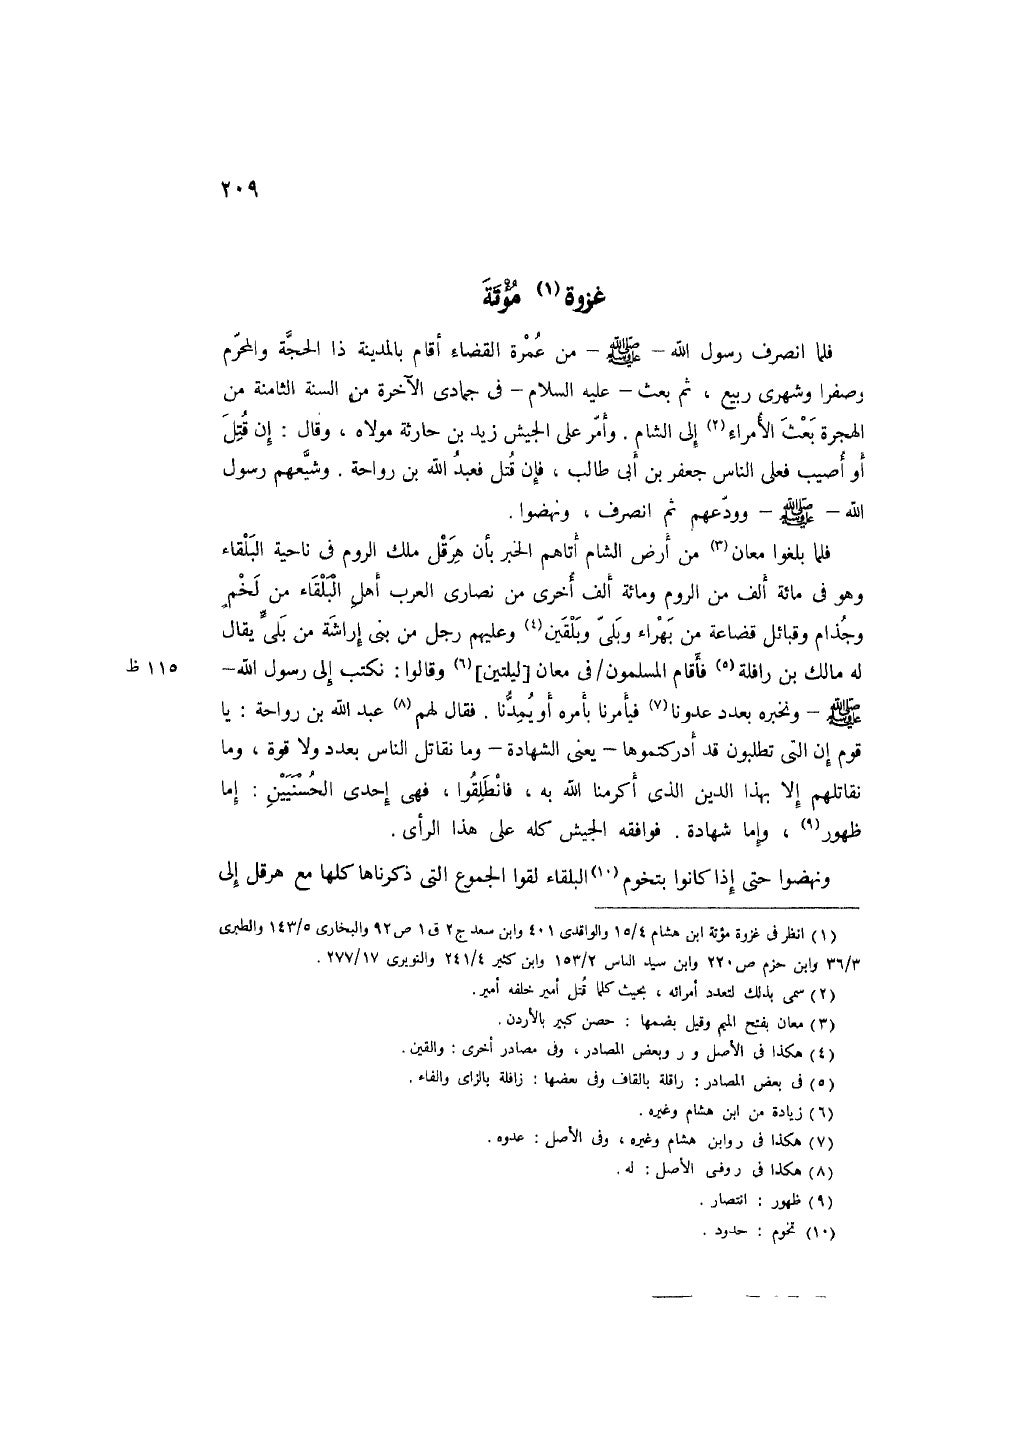 ٢٠٩
غزوة (١) مُؤْتَةَ
فلما انصرف رسول الله – ﷺ – من عُمْرة القضاء أقام بالمدينة ذا الحجَّة والمحرّم
وصفرا وشهرى ربيع ، ثم بعث – عليه السلام – فى جمادى الآخرة من السنة الثامنة من
الهجرة بَعْثَ الأُمراء(٢) إلى الشام . وأمّر على الجيش زيد بن حارثة مولاه ، وقال : إن قُتِلَ
أو أُصيب فعلى الناس جعفر بن أبى طالب ، فإن قُتل فعبدُ الله بن رواحة . وشيَّعهم رسول
الله – ﷺ – وودّعهم ثم انصرف ، ونهضوا .
فلما بلغوا معان(٣) من أرض الشام أتاهم الخبر بأن هِرَقْل ملك الروم فى ناحية البَلْقاء
وهو فى مائة ألف من الروم ومائة ألف أُخرى من نصارى العرب أهلِ الْبَلْقَاء من لَخْمٍ
وجُذام وقبائل قضاعة من بَهْراء وبَلىّ وبَلْقَين(٤) وعليهم رجل من بنى إراشَة من بَلىٍّ يقال
له مالك بن رافلة (٥) فأقام المسلمون/ فى معان [ليلتين](٦) وقالوا: نكتب إلى رسول الله –
١١٥ ظ
ﷺ – ونخبره بعدد عدونا(٧) فيأمرنا بأمره أو يُمِدُّنا . فقال لهم (٨) عبد الله بن رواحة : يا
قوم إن التى تطلبون قد أدركتموها – يعنى الشهادة – وما نقاتل الناس بعدد ولا قوة ، وما
نقاتلهم إلا بهذا الدين الذى أكرمنا الله به ، فانْطَلِقُوا ، فهى إحدى الحُسْنَيَيْنِ : إما
ظهور(٩) ، وإما شهادة . فوافقه الجيش كله على هذا الرأى .
ونهضوا حتى إذا كانوا بتخوم (١٠) البلقاء لقوا الجموع التى ذكرناها كلها مع هرقل إلى
(١) انظر فى غزوة مؤتة ابن هشام ١٥/٤ والواقدى ٤٠١ وابن سعد ج٢ ق١ ص٩٢ والبخارى ١٤٣/٥ والطبرى
٣٦/٣ وابن حزم ص٢٢٠ وابن سيد الناس ١٥٣/٢ وابن كثير ٢٤١/٤ والنويرى ٢٧٧/١٧ .
(٢) سمى بذلك لتعدد أمرائه ، بحيث كلما قُتل أمير خلفه أمير.
(٣) معان بفتح الميم وقيل بضمها : حصن كبير بالأردن .
(٤) هكذا فى الأصل و ر وبعض المصادر ، وفى مصادر أخرى : والقين .
(٥) فى بعض المصادر : راقلة بالقاف وفى بعضها : زافلة بالزاى والفاء .
(٦) زيادة من ابن هشام وغيره .
(٧) هكذا فى ر وابن هشام وغيره ، وفى الأصل : عدوه .
(٨) هكذا فى ر وفى الأصل : له .
(٩) ظهور : انتصار .
(١٠) تخوم : حدود .